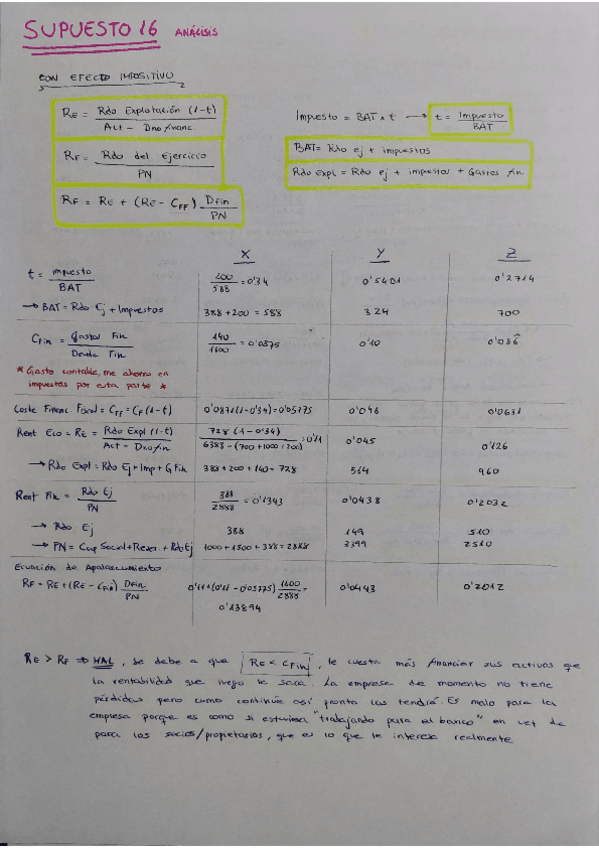 SUPUESTO 16 ANÁLISIS
CON EFECTO IMPOSITIVO
RE = Rdo Explotación (1-t) / Act - Dno financ.
RF = Rdo del Ejercicio / PN
RF = RE + (RE - CFF) DFin / PN
Impuesto = BAT x t → t = Impuesto / BAT
BAT = Rdo ej + impuestos
Rdo Expl = Rdo ej + impuestos + Gastos fin
X Y Z
t = impuesto / BAT 200 / 588 = 0'34 0'5401 0'2714
→ BAT = Rdo Ej + Impuestos 388 + 200 = 588 324 700
CFin = Gastos Fin / Deuda Fin 140 / 1600 = 0'0875 0'10 0'086
* Gasto contable, me ahorro en
impuestos por esta parte *
Coste Financ Fiscal = CFF = CF (1-t) 0'0871 (1-0'34) = 0'05775 0'046 0'0631
Rent Eco = RE = Rdo Expl (1-t) / Act - Dno fin 728 (1-0'34) / 6388 - (700+1000+200) = 0'11 0'045 0'126
→ Rdo Expl = Rdo Ej + Imp + G Fin 388 + 200 + 140 = 728 564 960
Rent Fin = Rdo Ej / PN 388 / 2888 = 0'1343 0'0438 0'2032
→ Rdo Ej 388 149 510
→ PN = Cap Social + Reser + Rdo Ej 1000 + 1500 + 388 = 2888 3399 2510
Ecuación de Apalancamiento
RF = RE + (RE - CFF) DFin / PN 0'11 + (0'11 - 0'05775) 1600 / 2888 = 0'0443 0'2012
0'13894
RE > RF ⇒ MAL, se debe a que RE < CFin, le cuesta más financiar sus activos que
la rentabilidad que luego le saca. La empresa de momento no tiene
pérdidas pero como continúe así pronto las tendrá. Es malo para la
empresa porque es como si estuviese "trabajando para el banco" en vez de
para los socios/propietarios, que es lo que le interesa realmente